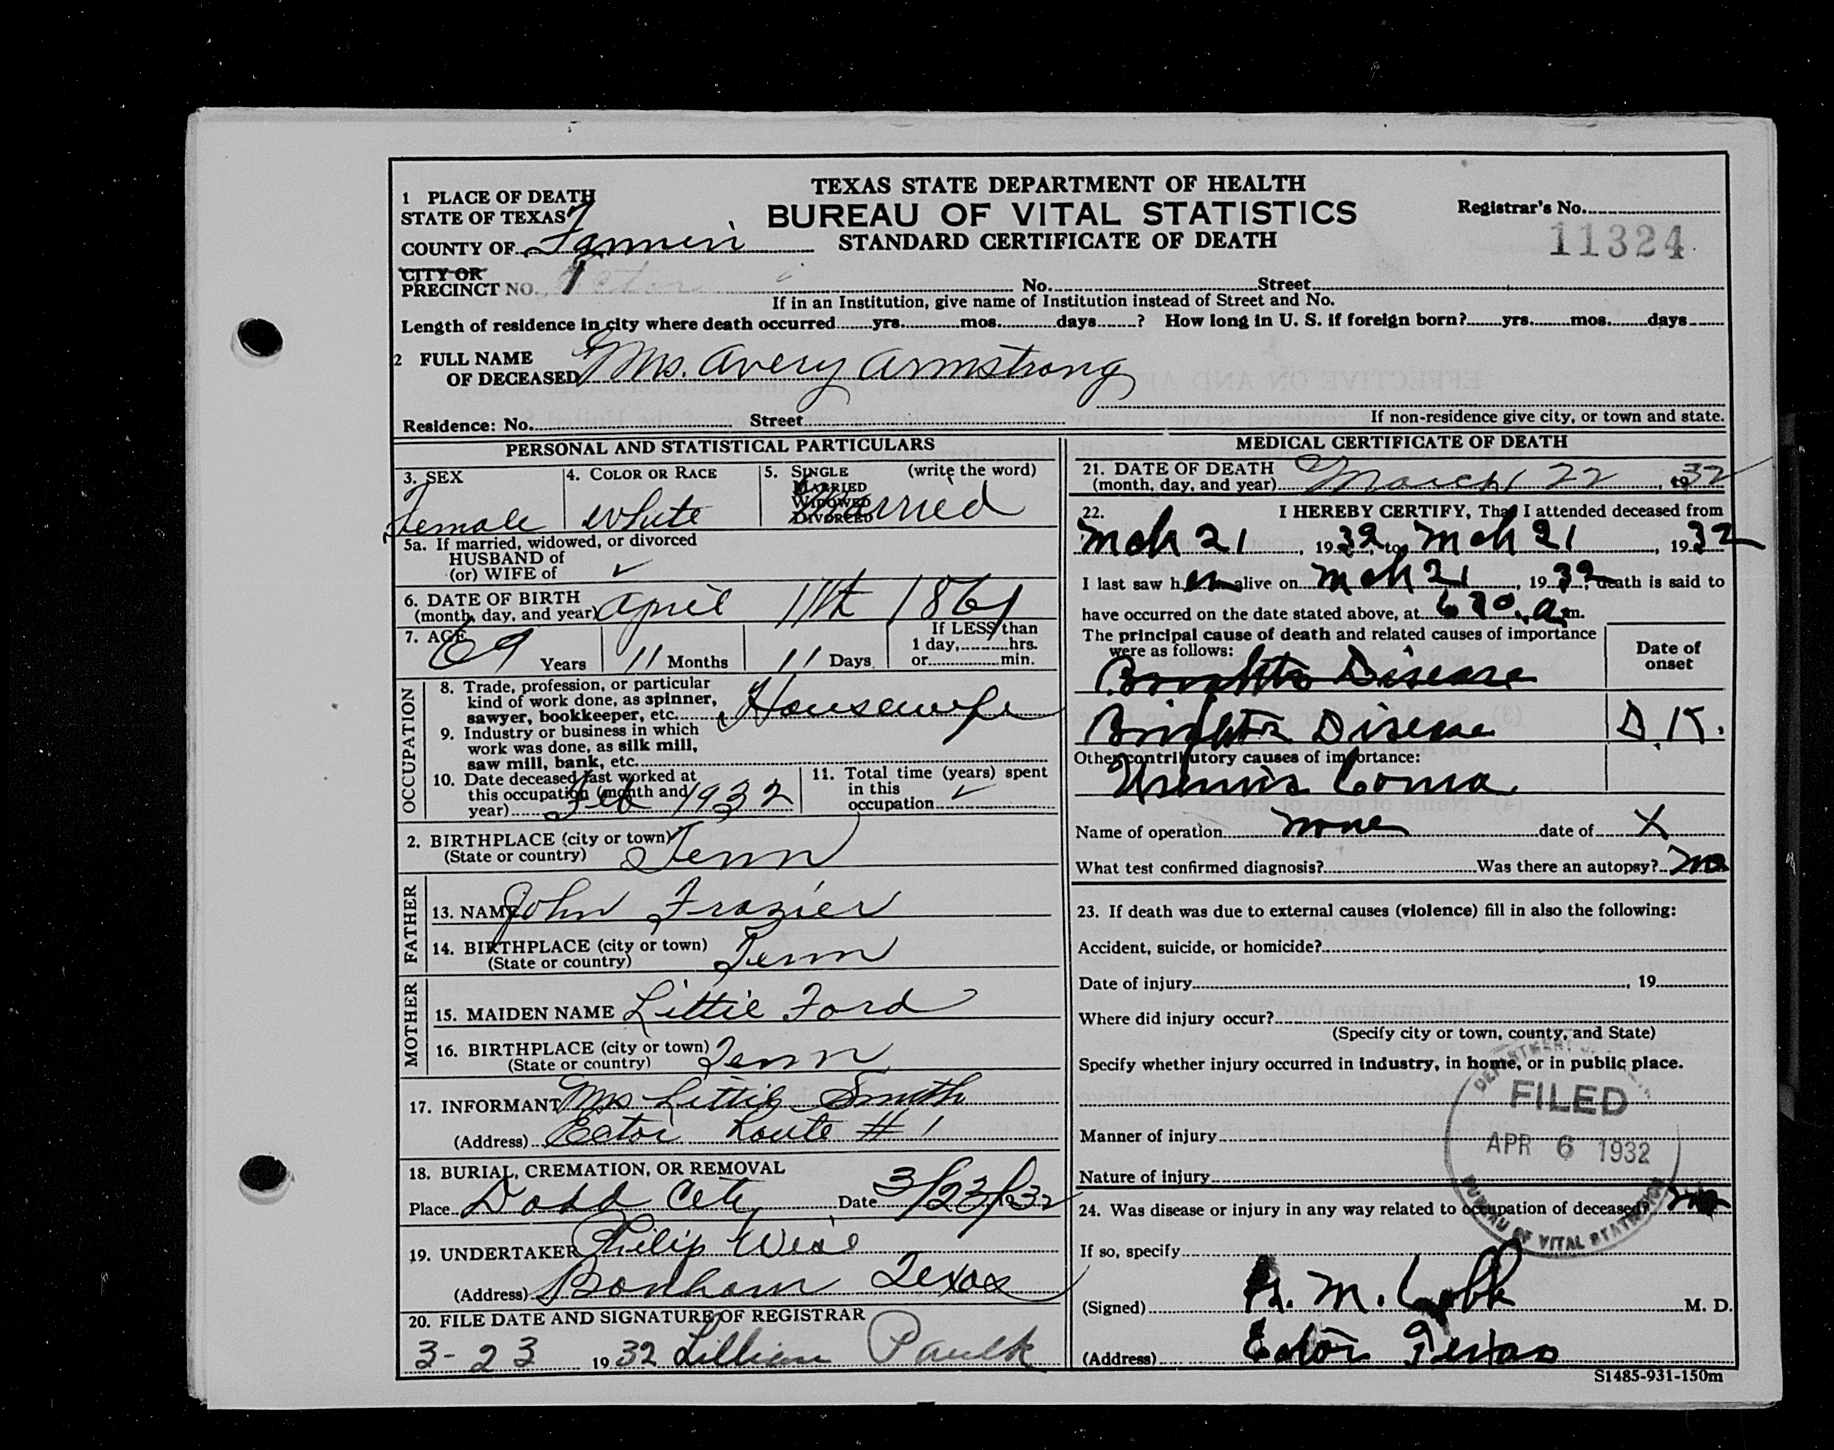 TEXAS STATE DEPARTMENT OF HEALTH
BUREAU OF VITAL STATISTICS
STANDARD CERTIFICATE OF DEATH
Registrar's No.
11324
1 PLACE OF DEATH
STATE OF TEXAS
COUNTY OF Fannin
CITY OR
PRECINCT NO. 1 Ector No. Street
If in an Institution, give name of Institution instead of Street and No.
Length of residence in city where death occurred yrs. mos. days ? How long in U. S. if foreign born? yrs. mos. days
2 FULL NAME
OF DECEASED Mrs. Avery Armstrong
Residence: No. Street
If non-residence give city, or town and state.
PERSONAL AND STATISTICAL PARTICULARS
3. SEX
Female
4. COLOR OR RACE
White
5. SINGLE (write the word)
MARRIED
WIDOWED
DIVORCED
Married
5a. If married, widowed, or divorced
HUSBAND of
(or) WIFE of ✓
6. DATE OF BIRTH
(month, day, and year) April 11th 1861
7. AGE 69 Years 11 Months 11 Days
If LESS than
1 day, hrs.
or min.
OCCUPATION
8. Trade, profession, or particular
kind of work done, as spinner,
sawyer, bookkeeper, etc. Housewife
9. Industry or business in which
work was done, as silk mill,
saw mill, bank, etc.
10. Date deceased last worked at
this occupation (month and
year) Feb 1932
11. Total time (years) spent
in this
occupation ✓
2. BIRTHPLACE (city or town)
(State or country) Tenn
FATHER
13. NAME John Frazier
14. BIRTHPLACE (city or town)
(State or country) Tenn
MOTHER
15. MAIDEN NAME Littie Ford
16. BIRTHPLACE (city or town)
(State or country) Tenn
17. INFORMANT Mrs Littie Smith
(Address) Ector Route # 1
18. BURIAL, CREMATION, OR REMOVAL
Place Dodd City Date 3/23/1932
19. UNDERTAKER Philip Wise
(Address) Bonham Texas
20. FILE DATE AND SIGNATURE OF REGISTRAR
3-23 1932 Lillian Paulk
MEDICAL CERTIFICATE OF DEATH
21. DATE OF DEATH
(month, day, and year) March 22, 1932
22. I HEREBY CERTIFY, That I attended deceased from
Mch 21, 1932 to Mch 21, 1932
I last saw her alive on Mch 21, 1932, death is said to
have occurred on the date stated above, at 630 a.m.
The principal cause of death and related causes of importance
were as follows:
Date of
onset
Brights Disease
Brights Disease D.K.
Other contributory causes of importance:
Uremic Coma
Name of operation none date of X
What test confirmed diagnosis? Was there an autopsy? no
23. If death was due to external causes (violence) fill in also the following:
Accident, suicide, or homicide?
Date of injury , 19
Where did injury occur?
(Specify city or town, county, and State)
Specify whether injury occurred in industry, in home, or in public place.
Manner of injury
Nature of injury
FILED
APR 6 1932
BUREAU OF VITAL STATISTICS
24. Was disease or injury in any way related to occupation of deceased? no
If so, specify
(Signed) M. Cobb M. D.
(Address) Ector Texas
S1485-931-150m